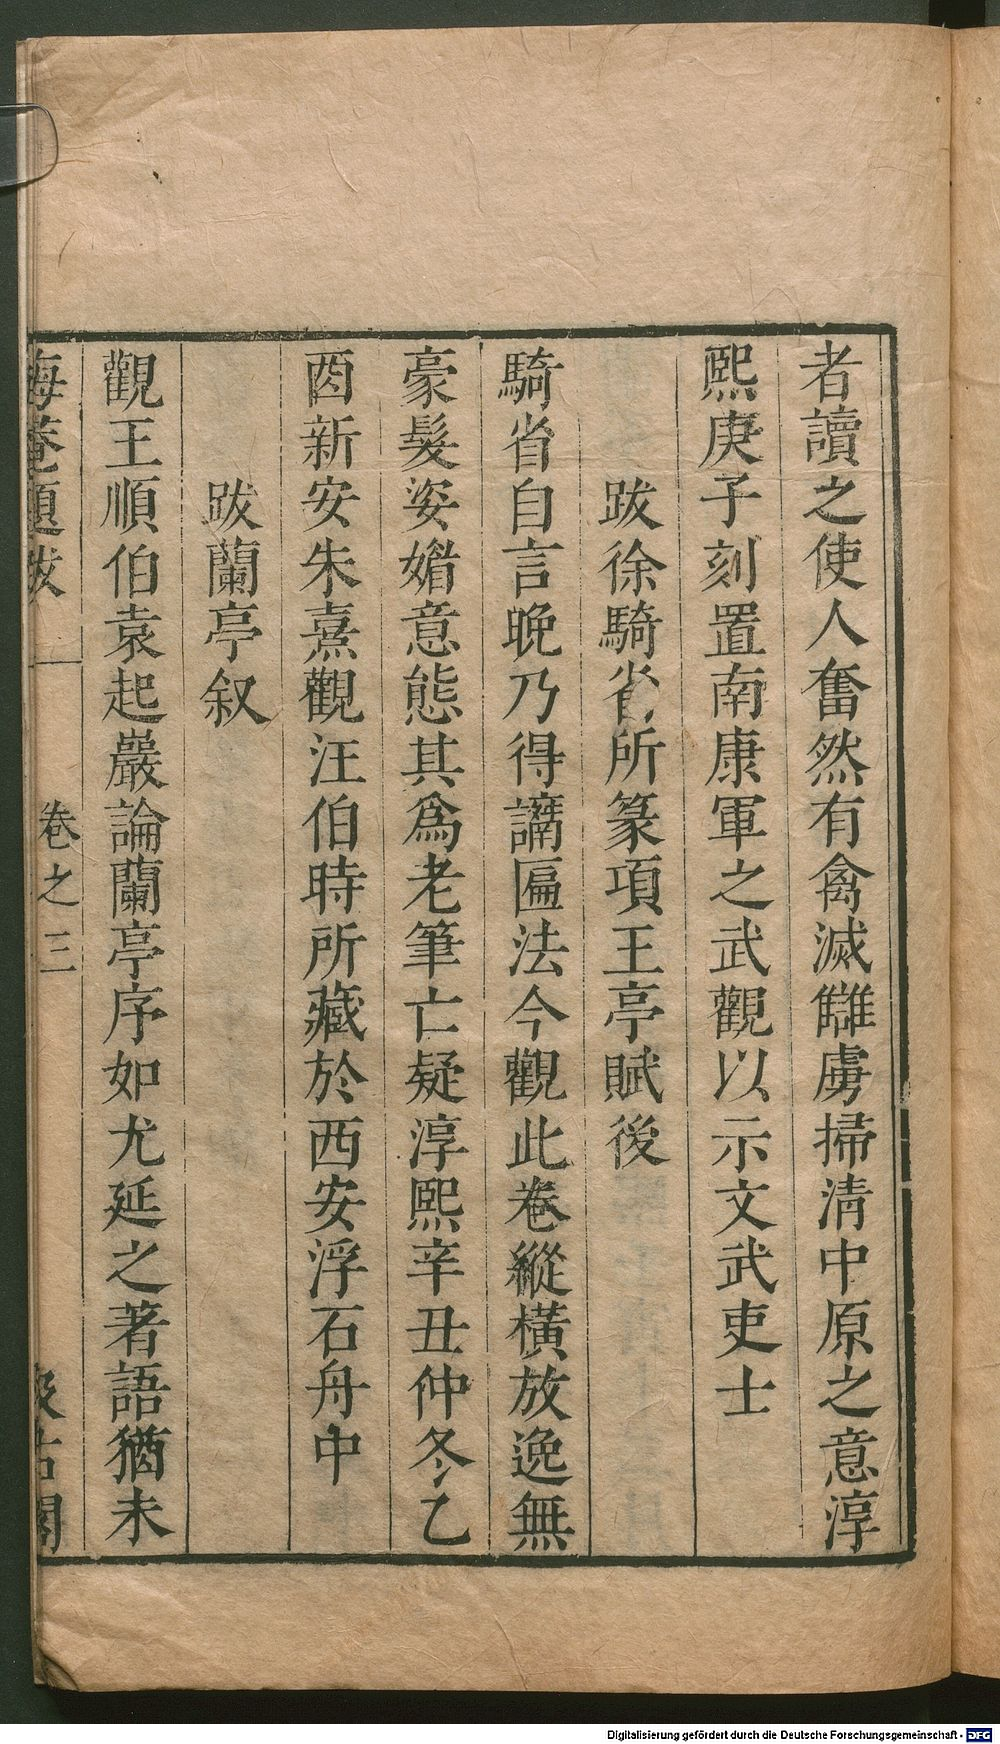 者讀之使人奮然有禽滅讎虜掃清中原之意淳
熙庚子刻置南康軍之武觀以示文武吏士
跋徐騎省所篆項王亭賦後
騎省自言晚乃得䛢匾法今觀此卷縱橫放逸無
豪髮姿媚意態其爲老筆亡疑淳熙辛丑仲冬乙
酉新安朱熹觀汪伯時所藏於西安浮石舟中
跋蘭亭叙
觀王順伯袁起巖論蘭亭序如尤延之著語猶未
晦菴題跋 卷之三 汲古閣
Digitalisierung gefördert durch die Deutsche Forschungsgemeinschaft - DFG